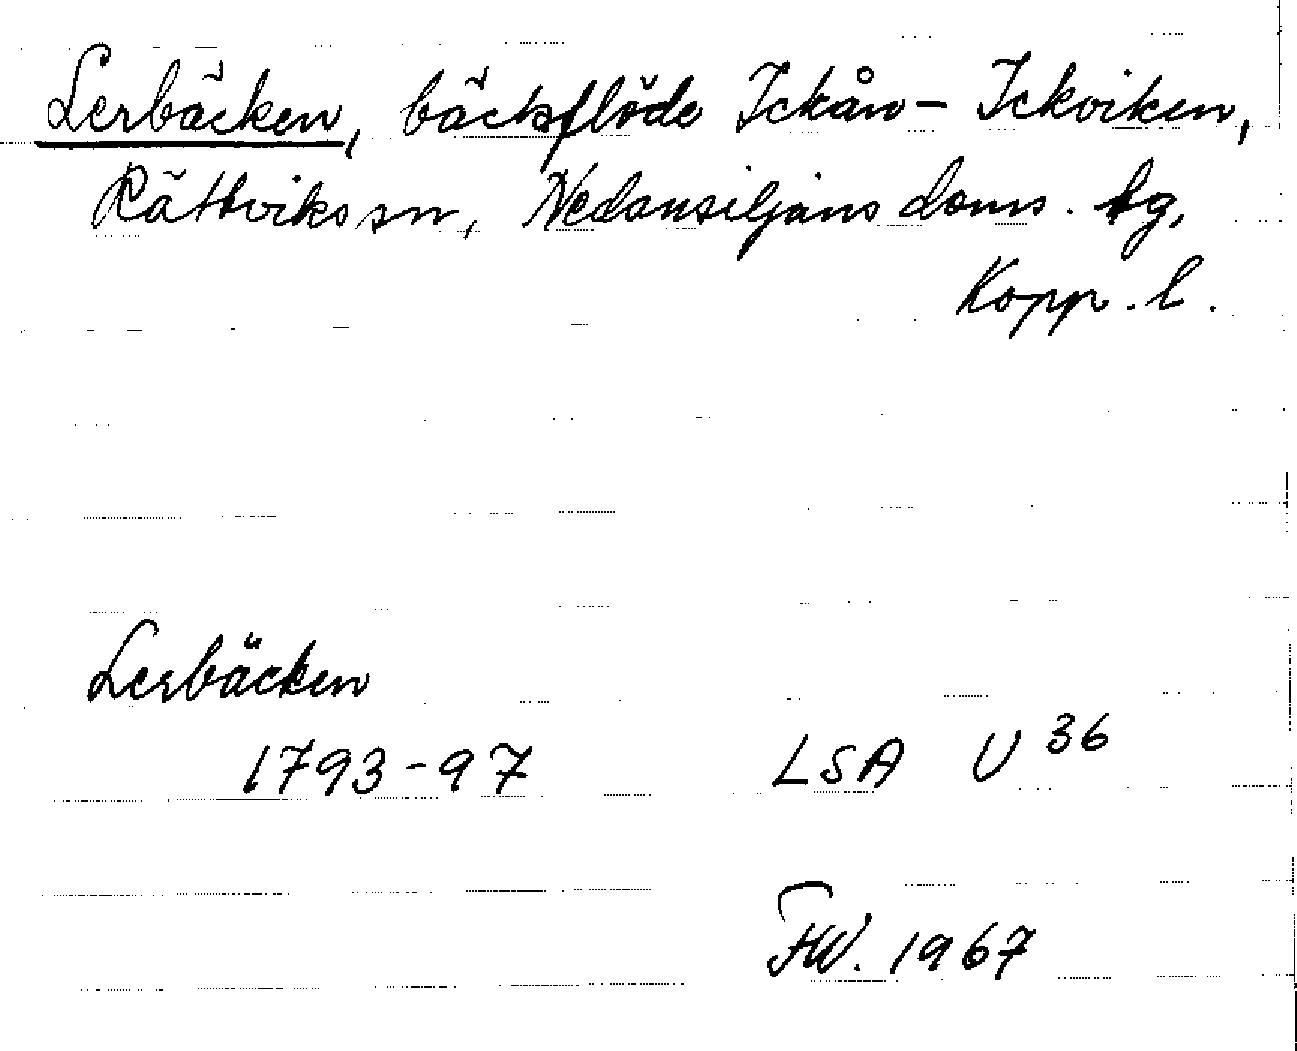 Lerbäcken, bäcksflöde Ickån - Ickviken,
Rättviks sn, Nedansiljans doms. tg,
Kopp. l.
Lerbäcken
1793-97 LSA U 36
FW. 1967